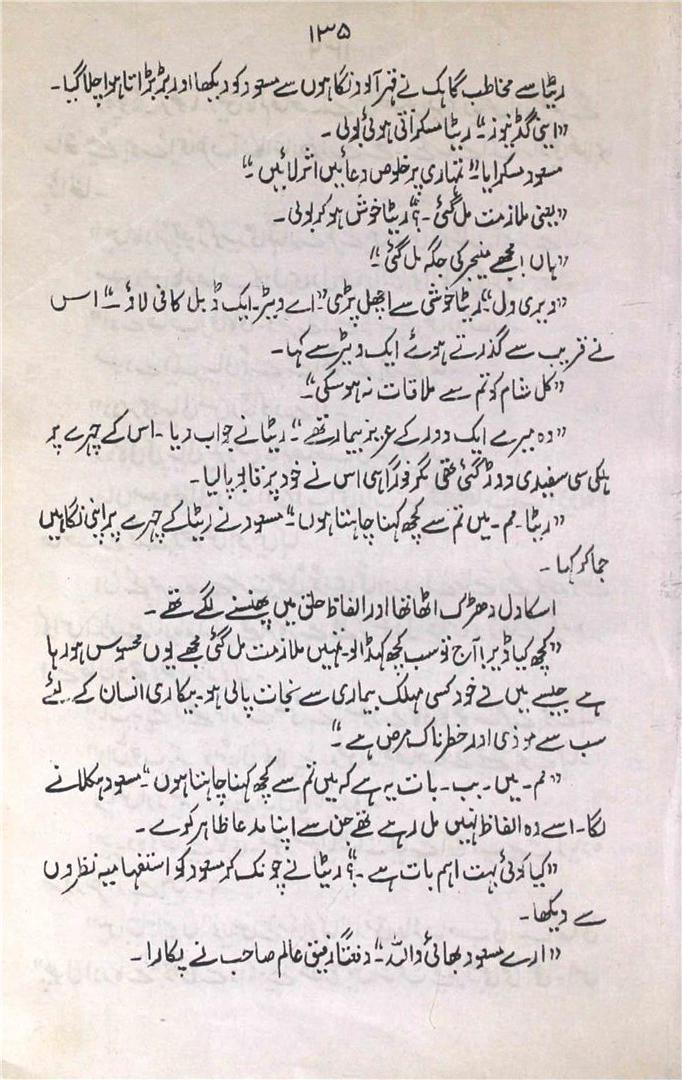 ۱۳۵
ریٹا سے مخاطب گاہک نے قہر آلود نگاہوں سے مسعود کو دیکھا اور بڑبڑاتا ہوا چلا گیا۔
”اینی گڈ نیوز“۔ ریٹا مسکراتی ہوئی بولی۔
مسعود مسکرایا۔ ”تمہاری پر خلوص دعائیں اثر لائیں“
”یعنی ملازمت مل گئی۔؟“ ریٹا خوش ہو کر بولی۔
”ہاں! مجھے منیجر کی جگہ مل گئی“
”ویری ول“۔ ریٹا خوشی سے اچھل پڑی ”اے ویٹر۔ ایک ڈبل کافی لاؤ۔“ اس
نے قریب سے گذرتے ہوئے ایک ویٹر سے کہا۔
”کل شام کو تم سے ملاقات نہ ہو سکی“۔
”وہ میرے ایک دور کے عزیز بیمار تھے“۔ ریٹا نے جواب دیا۔ اس کے چہرے پر
ہلکی سی سفیدی دوڑ گئی تھی مگر فوراً ہی اس نے خود پر قابو پا لیا۔
”ریٹا۔ مم۔ میں تم سے کچھ کہنا چاہتا ہوں“۔ مسعود نے ریٹا کے چہرے پر اپنی نگاہیں
جما کر کہا۔
اسکا دل دھڑک اٹھا تھا اور الفاظ حلق میں پھنسنے لگے تھے۔
”کچھ کیا ڈیر! آج تو سب کچھ کہہ ڈالو۔ تمہیں ملازمت مل گئی مجھے یوں محسوس ہو رہا
ہے جیسے میں نے خود کسی مہلک بیماری سے نجات پالی ہو۔ بیکاری انسان کے لئے
سب سے موذی اور خطرناک مرض ہے۔“
”تم۔ میں۔ بب۔ بات یہ ہے کہ میں تم سے کچھ کہنا چاہتا ہوں“۔ مسعود ہکلانے
لگا۔ اسے وہ الفاظ نہیں مل رہے تھے جن سے اپنا مدعا ظاہر کرے۔
”کیا کوئی بہت اہم بات ہے۔؟“ ریٹا نے چونک کر مسعود کو استفہامیہ نظروں
سے دیکھا۔
”ارے مسعود بھائی واللہ“۔ دفعتاً رفیق عالم صاحب نے پکارا۔